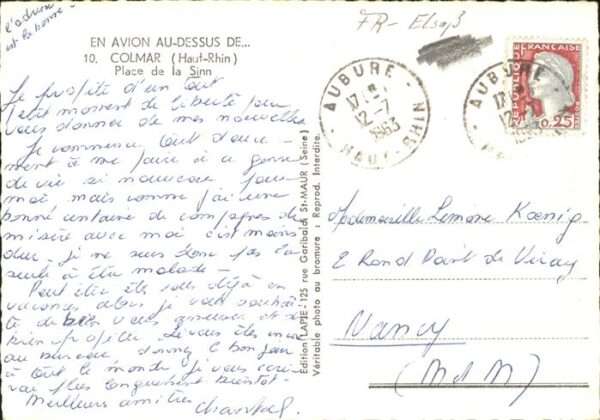 l'adresse
est la bonne -
FR- Elsaß
EN AVION AU-DESSUS DE...
10. COLMAR (Haut-Rhin)
Place de la Sinn
Je profite d'un tout
petit moment de liberté pour
vous donner de mes nouvelles
Je commence tout douce-
ment à me faire à ce genre
de vie si nouveau pour
moi, mais comme j'ai une
bonne centaine de compagnes de
misère avec moi c'est moins
dur. je ne suis donc pas la
seule à être malade -
Peut être êtes vous déjà en
vacances alors je vous souhaite
de bien vous amuser et de
bien profiter. Si vous êtes
au bureau donnez le bonjour
à tout le monde je vous écri-
rai plus longuement bientôt.
Meilleurs amitiés
Chantal
Edition LAPIE-125 rue Garibaldi ST-MAUR (Seine)
Véritable photo au bromure : Reprod. Interdite.
AUBURE
17 H
12-7
1963
HAUT-RHIN
REPUBLIQUE FRANCAISE
0,25
Mademoiselle Koenig
2 Rond Point de
Nancy
(M et M)